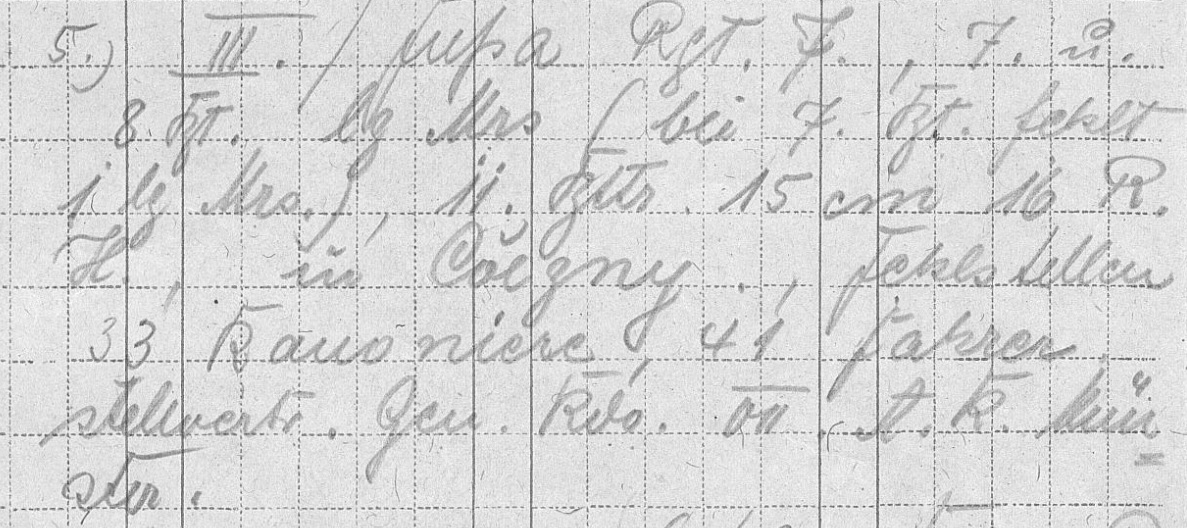 5.) III. / fupa Rgt. 7., 7. u.
8. Bt. lg Mrs (bei 7. Bt. fehlt
1 lg Mrs.), 11. Bttr. 15 cm 16 R.
H., in Coëgny., Fehlstellen
33 Kanoniere, 41 Fahrer,
stellvertr. Gen. Kdo. VII. A. K. Mün
ster.